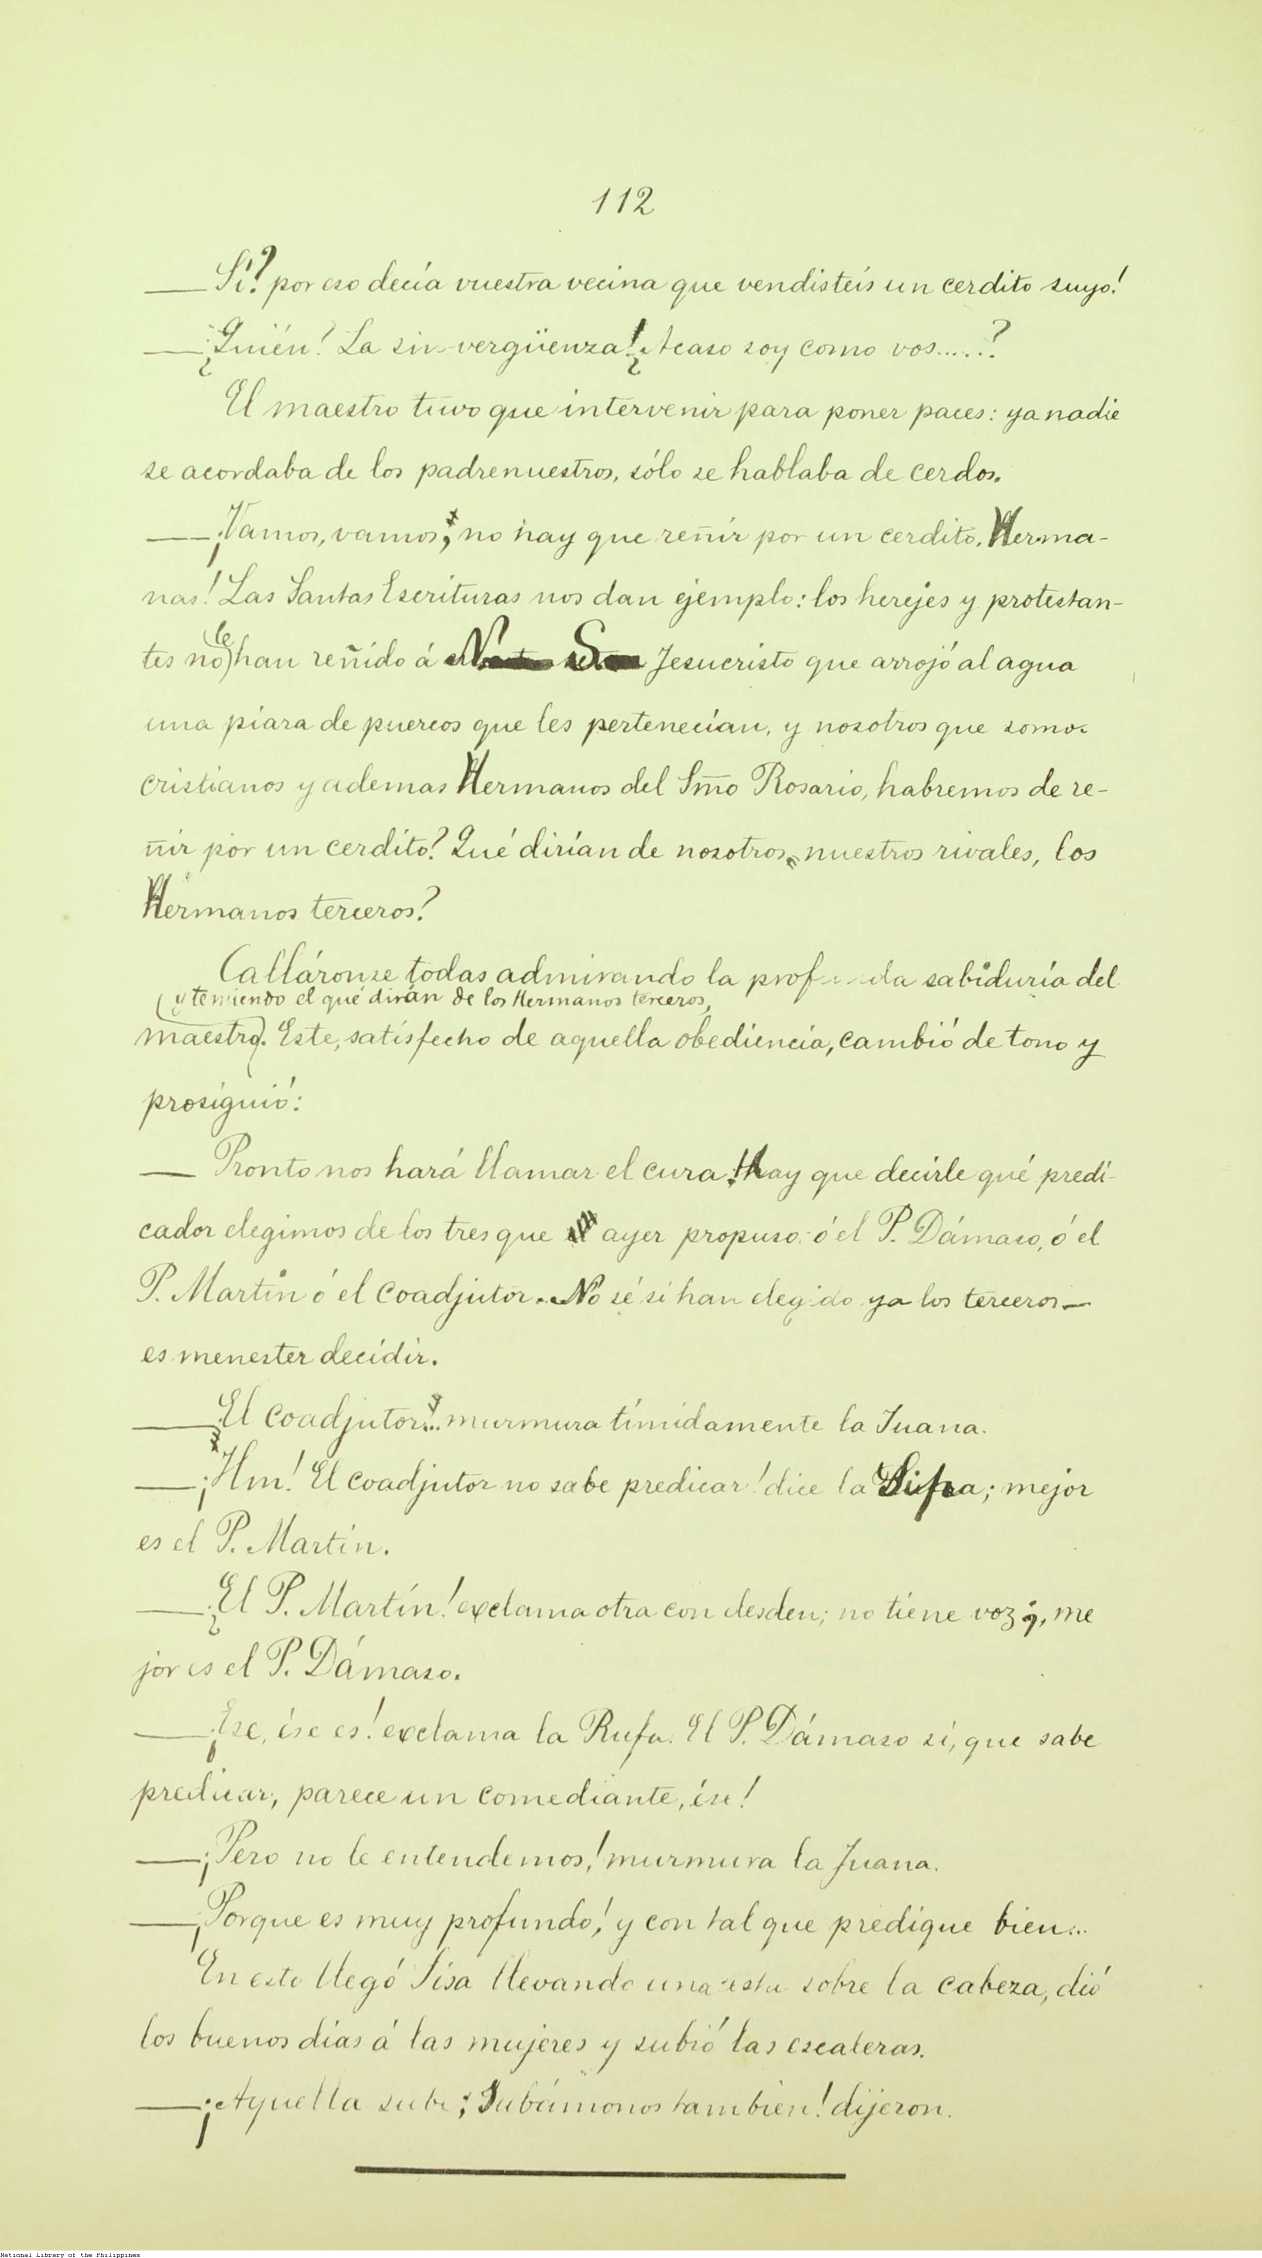 112
— Sí? por eso decía vuestra vecina que vendisteis un cerdito suyo!
— ¿Quién? La sin-vergüenza! ¿Acaso soy como vos.....?
El maestro tuvo que intervenir para poner paces: ya nadie
se acordaba de los padrenuestros, sólo se hablaba de cerdos.
— ¡Vamos, vamos; no hay que reñir por un cerdito, Herma-
nas! Las Santas Escrituras nos dan ejemplo: los herejes y protestan-
tes no le han reñido á N. S. Jesucristo que arrojó al agua
una piara de puercos que les pertenecían, y nosotros que somos
cristianos y ademas Hermanos del Smo Rosario, habremos de re-
ñir por un cerdito? Qué dirían de nosotros nuestros rivales, los
Hermanos terceros?
Calláronse todas admirando la profunda sabiduría del
y temiendo el qué dirán de los Hermanos terceros,
maestro. Este, satisfecho de aquella obediencia, cambió de tono y
prosiguió:
— Pronto nos hará llamar el cura. Hay que decirle qué predi-
cador elegimos de los tres que ayer propuso: ó el P. Dámaso, ó el
P. Martin ó el coadjutor. No sé si han elegido ya los terceros —
es menester decidir.
— El coadjutor... murmura tímidamente la Juana.
— ¡Hm! El coadjutor no sabe predicar! dice la Sipa; mejor
es el P. Martin.
— ¿El P. Martín! exclama otra con desden; no tiene voz, me
jor es el P. Dámaso.
— ¡Ese, ése es! exclama la Rufa. El P. Dámaso sí, que sabe
predicar, parece un comediante, ése!
— ¡Pero no le entendemos! murmura la Juana.
— ¡Porque es muy profundo! y con tal que predique bien...
En esto llegó Sisa llevando una cesta sobre la cabeza, dió
los buenos días á las mujeres y subió las escaleras.
— ¡Aquella sube; Subámonos tambien! dijeron.
National Library of the Philippines